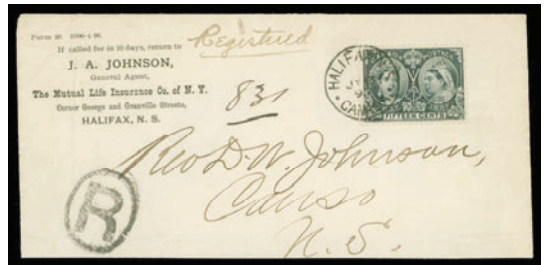 Form 80 2000-4 96.
If called for in 10 days, return to
J. A. JOHNSON,
General Agent,
The Mutual Life Insurance Co. of N. Y.
Corner George and Granville Streets,
HALIFAX, N. S.
Registered
831
HALIFAX
CAN
FIFTEEN CENTS
Rev D. W. Johnson,
Canso
N. S.
R